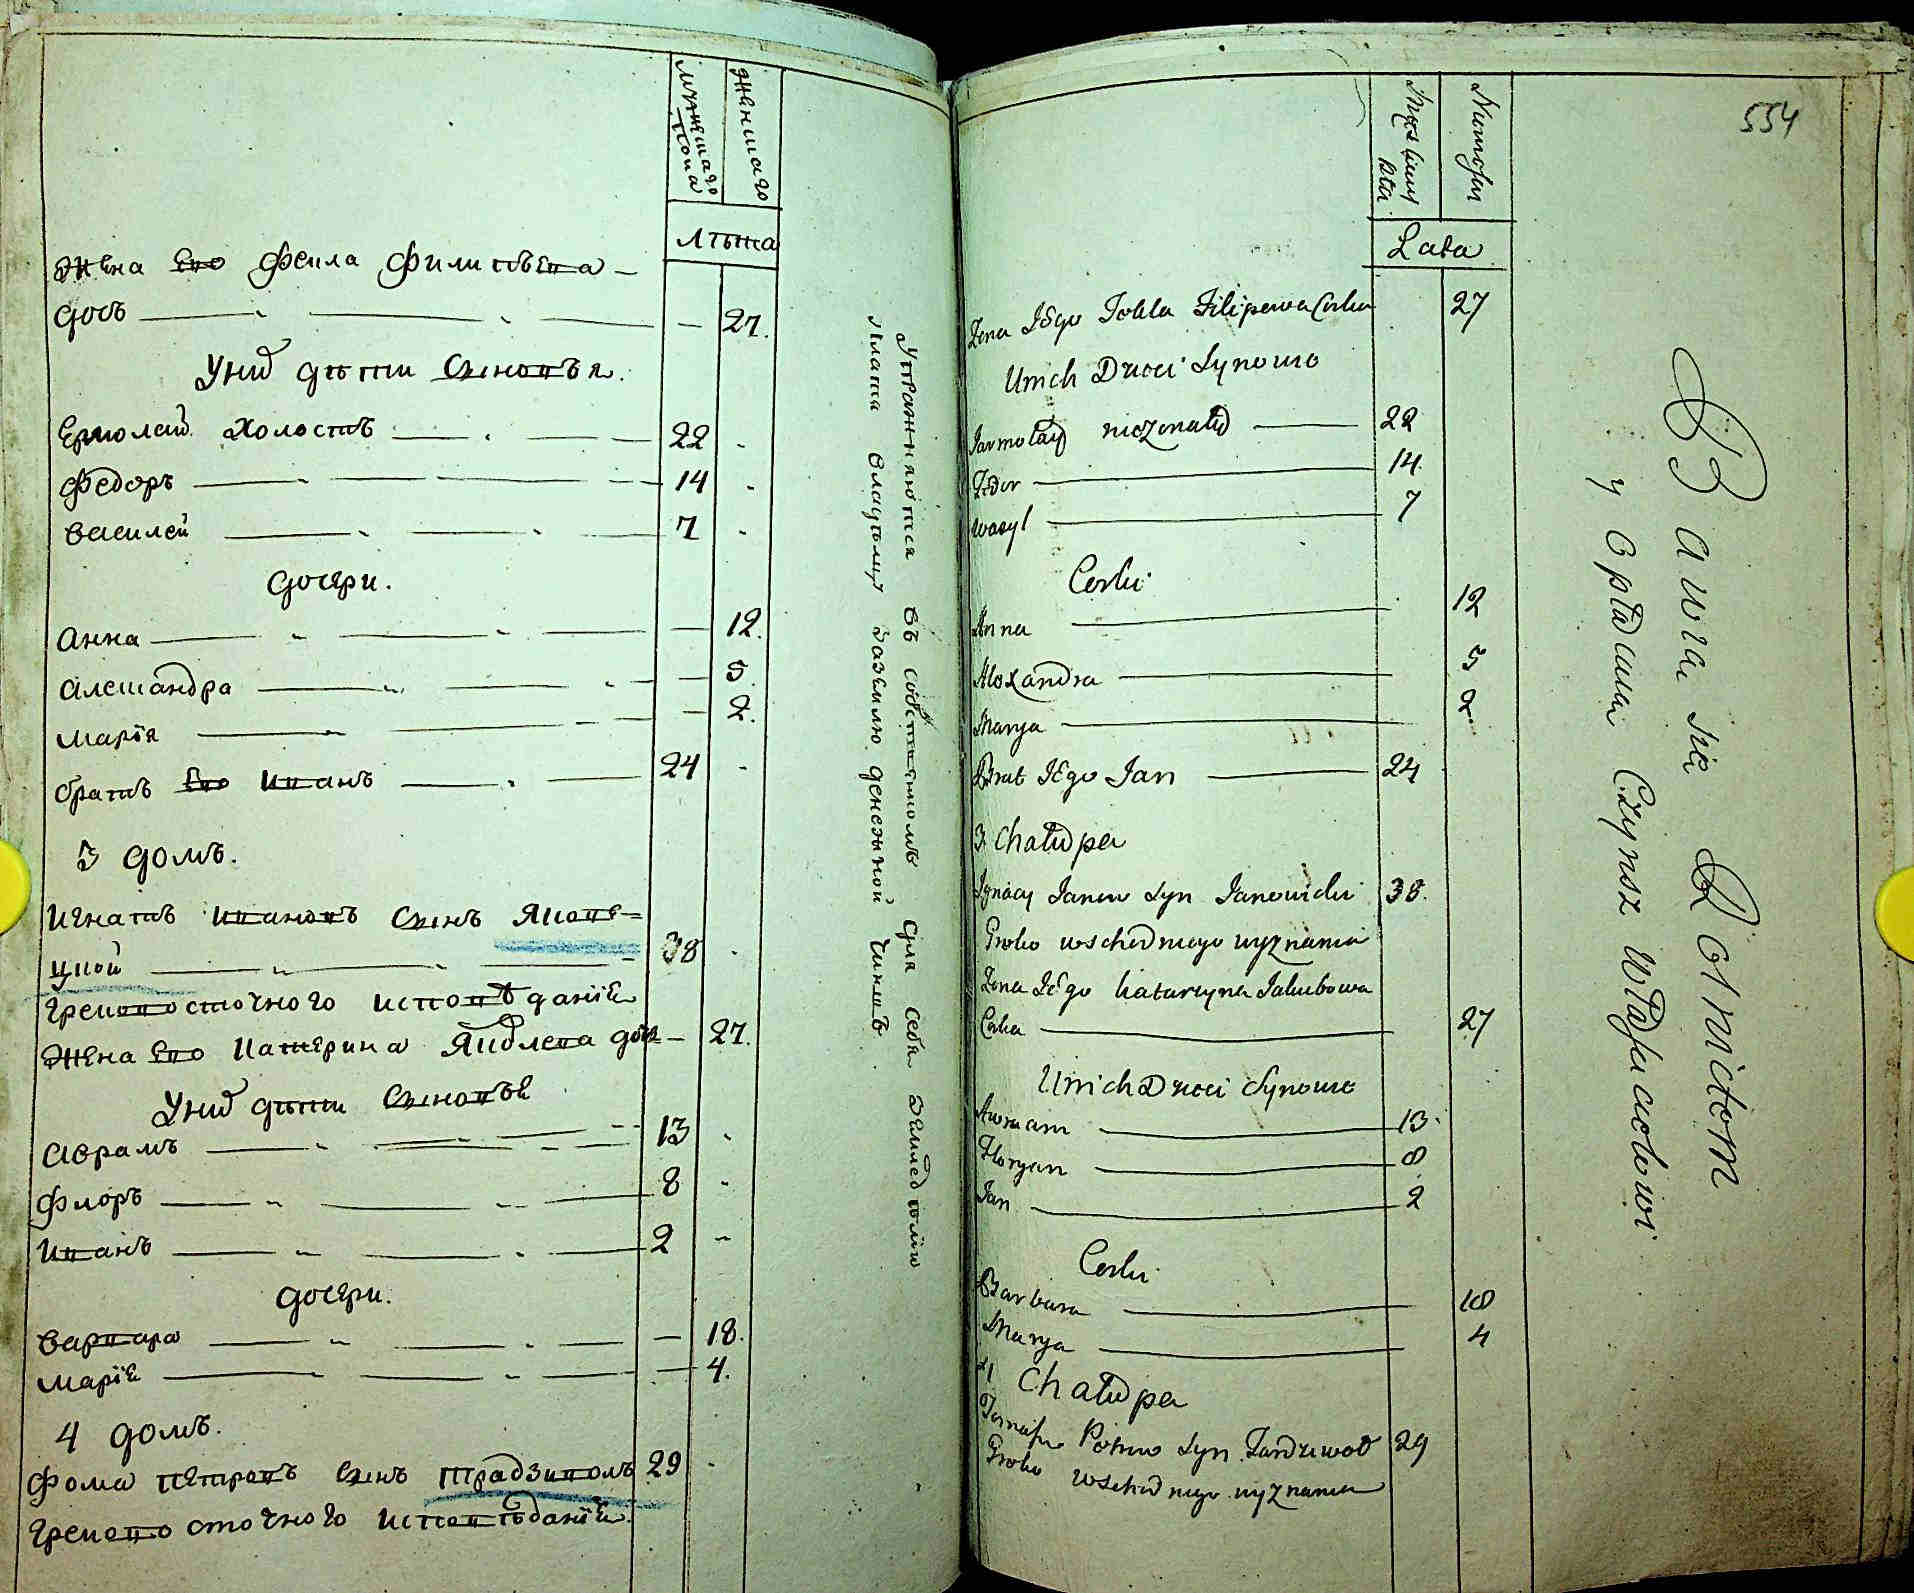 мужеска
пола
женскаго
Лѣта
Жена его Фекла Филипьева
дочь 27.
У них дѣти сыновья.
Ермолай холостъ 22
Федоръ 14
Василей 7
дочери.
Анна 12.
Александра 5.
Марія 2.
братъ его Иванъ 24
3 домъ.
Игнатъ Ивановъ сынъ Янове-
цкой 38
грековосточного исповѣданія
Жена его Катерина Яковлева дочь 27.
У них дѣти сыновья
Аврамъ 13
Флоръ 8
Иванъ 2
дочери.
Варвара 18.
Марія 4.
4 домъ.
Фома Петровъ сынъ 29
грековосточного исповѣданія.
Упражняются въ собственномъ для себя земледѣліи
платя владѣльцу за землю денежной чиншъ
554
Męskiey
płci
Lata
Żona Iego Tekla Filipowa Corka 27
U nich Dzieci Synowie
Jarmołay nieżonaty 22
Fedor 14
Wasyl 7
Corki
Anna 12
Alexandra 5
Marya 2
Brat Iego Ian 24
3 Chałupa
Ignacy Ianow Syn Ianowicki 38.
Greko wschodniego wyznania
Żona Iego Katarzyna Iakubowa
Corka 27
U nich Dzieci Synowie
Awram 13
Floryan 8
Ian 2
Corki
Barbara 18
Marya 4
4 Chałupa
Piotrow Syn 29
Greko wschodniego wyznania
Bawią się Rolnictwem
y opłacaią Czynsz Właścicielowi